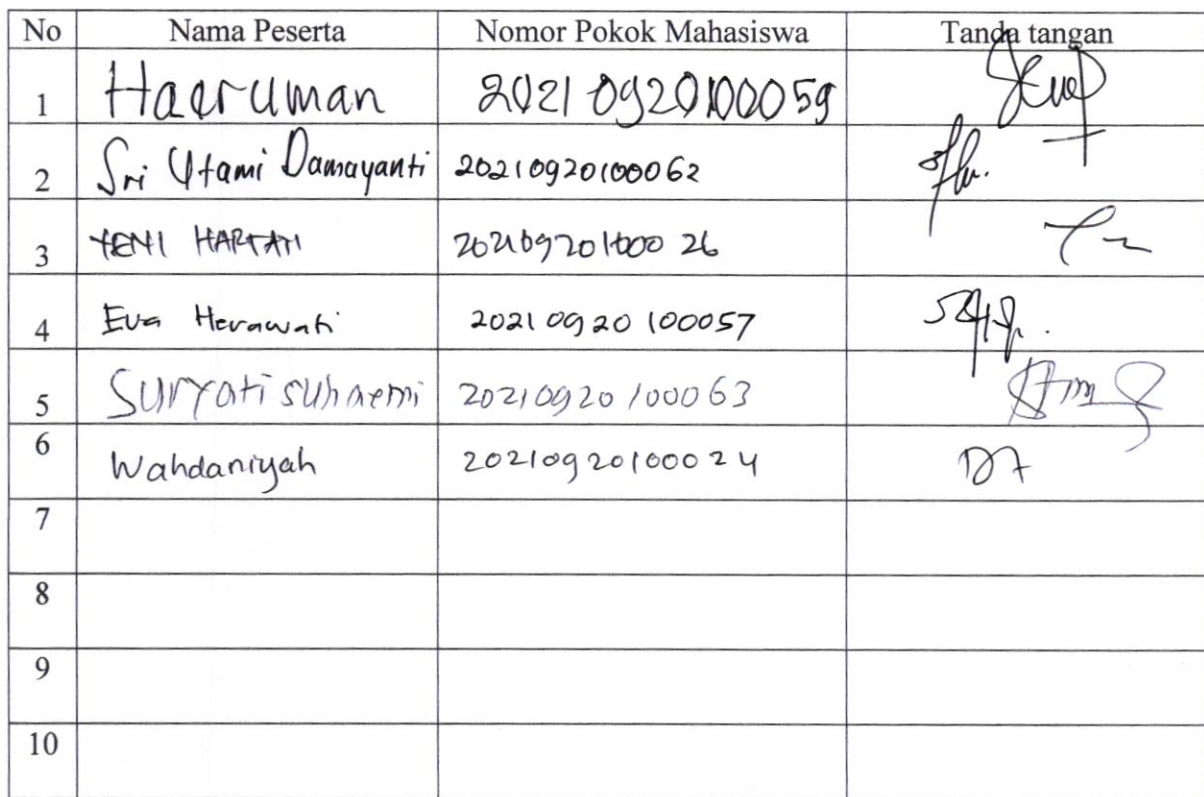 No Nama Peserta Nomor Pokok Mahasiswa Tanda tangan
1 Haeruman 20210920100059
2 Sri Utami Damayanti 20210920100062
3 YENI HARTATI 20210920100026
4 Eva Herawati 20210920100057
5 Suryati suhaemi 20210920100063
6 Wahdaniyah 20210920100024
7
8
9
10